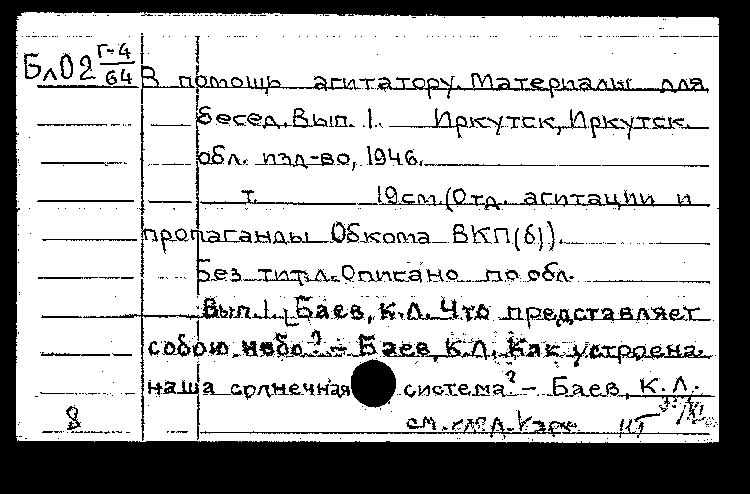 Бл02 Г-4/64
В помощь агитатору. Материалы для
бесед. Вып. 1. Иркутск, Иркутск.
обл. изд-во, 1946.
т. 19см. (Отд. агитации и
пропаганды Обкома ВКП(б)).
Без тит. л. Описано по обл.
Вып. 1. [Баев, К.Л. Что представляет
собою небо? – Баев, К.Л. Как устроена
наша солнечная система? – Баев, К.Л.
8 см. след. карт.